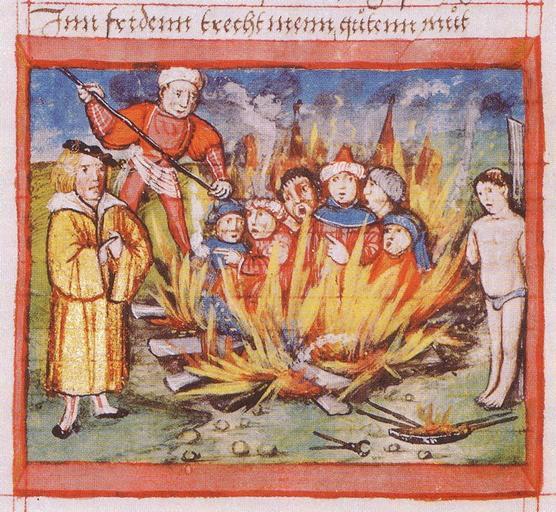 Inn fridenn trecht menn gůtenn můt